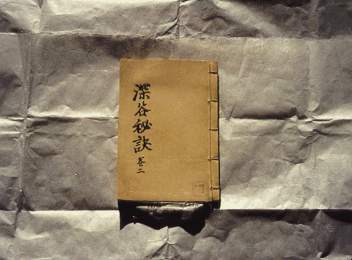 深谷秘訣
卷二